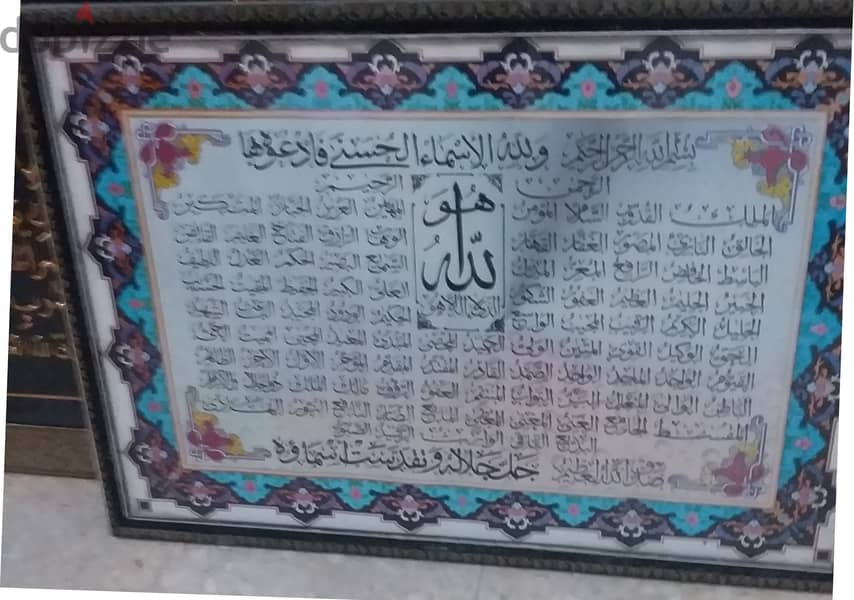 dubizzle
بسم الله الرحمن الرحيم ولله الاسماء الحسنى فادعوه بها
الرحمن الرحيم
هو الله
الملك القدوس السلام المؤمن المهيمن العزيز الجبار المتكبر
الخالق البارئ المصور الغفار القهار الوهاب الرزاق الفتاح العليم القابض
الباسط الخافض الرافع المعز المذل السميع البصير الحكم العدل اللطيف
الخبير الحليم العظيم الغفور الشكور العلي الكبير الحفيظ المقيت الحسيب
الجليل الكريم الرقيب المجيب الواسع الحكيم الودود المجيد الباعث الشهيد
الحق الوكيل القوي المتين الولي الحميد المحصي المبدئ المعيد المحيي المميت الحي
القيوم الواجد الماجد الواحد الصمد القادر المقتدر المقدم المؤخر الاول الاخر الظاهر
الباطن الوالي المتعال البر التواب المنتقم العفو الرؤوف مالك الملك ذو الجلال والاكرام
المقسط الجامع الغني المغني المانع الضار النافع النور الهادي
البديع الباقي الوارث الرشيد الصبور
صدق الله العظيم جل جلاله وتقدست اسماؤه